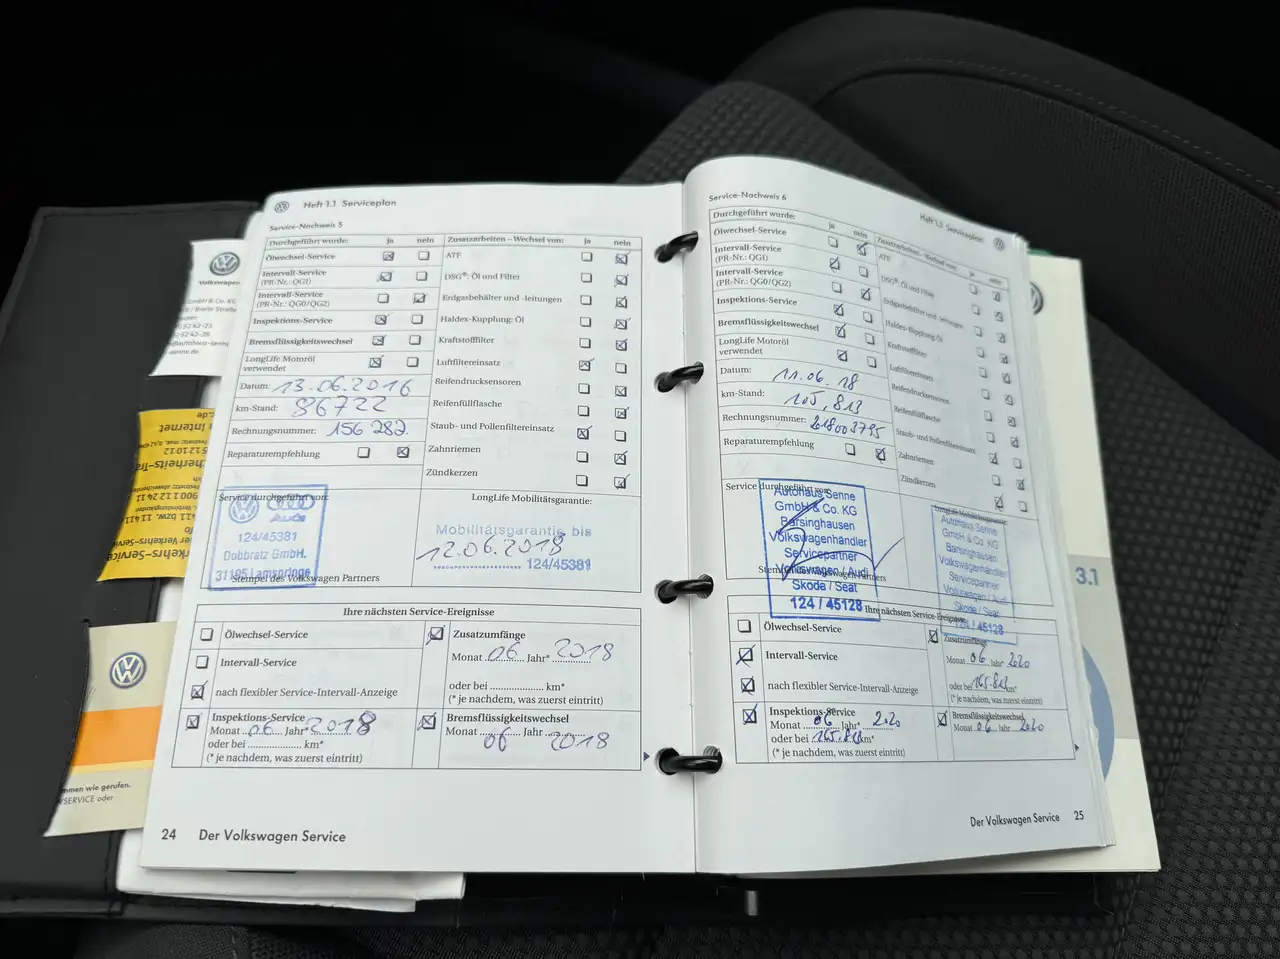 Heft 1.1 Serviceplan
Service-Nachweis 5
Durchgeführt wurde: ja nein
Ölwechsel-Service
Intervall-Service
(PR-Nr.: QG1)
Intervall-Service
(PR-Nr.: QG0/QG2)
Inspektions-Service
Bremsflüssigkeitswechsel
LongLife Motoröl
verwendet
Datum: 13.06.2016
km-Stand: 86722
Rechnungsnummer: 156282
Reparaturempfehlung
Zusatzarbeiten – Wechsel von: ja nein
ATF
DSG®: Öl und Filter
Erdgasbehälter und -leitungen
Haldex-Kupplung: Öl
Kraftstofffilter
Luftfiltereinsatz
Reifendrucksensoren
Reifenfüllflasche
Staub- und Pollenfiltereinsatz
Zahnriemen
Zündkerzen
Service durchgeführt von:
Audi
124/45381
Dobbratz GmbH.
31195 Lamspringe
Stempel des Volkswagen Partners
LongLife Mobilitätsgarantie:
Mobilitätsgarantie bis
12.06.2018
124/45381
Ihre nächsten Service-Ereignisse
Ölwechsel-Service
Intervall-Service
nach flexibler Service-Intervall-Anzeige
Zusatzumfänge
Monat 06 Jahr* 2018
oder bei .................... km*
(* je nachdem, was zuerst eintritt)
Inspektions-Service
Monat 06 Jahr* 2018
oder bei .................... km*
(* je nachdem, was zuerst eintritt)
Bremsflüssigkeitswechsel
Monat 06 Jahr 2018
24 Der Volkswagen Service
Heft 1.1 Serviceplan
Service-Nachweis 6
Durchgeführt wurde: ja nein
Ölwechsel-Service
Intervall-Service
(PR-Nr.: QG1)
Intervall-Service
(PR-Nr.: QG0/QG2)
Inspektions-Service
Bremsflüssigkeitswechsel
LongLife Motoröl
verwendet
Datum: 11.06.18
km-Stand: 105.813
Rechnungsnummer: 218003795
Reparaturempfehlung
Zusatzarbeiten – Wechsel von: ja nein
ATF
DSG®: Öl und Filter
Erdgasbehälter und -leitungen
Haldex-Kupplung: Öl
Kraftstofffilter
Luftfiltereinsatz
Reifendrucksensoren
Reifenfüllflasche
Staub- und Pollenfiltereinsatz
Zahnriemen
Zündkerzen
Service durchgeführt von:
Autohaus Senne
GmbH & Co. KG
Barsinghausen
Volkswagenhändler
Servicepartner
Volkswagen / Audi
Skoda / Seat
124 / 45128
LongLife Mobilitätsgarantie:
Autohaus Senne
GmbH & Co. KG
Barsinghausen
Volkswagenhändler
Servicepartner
Volkswagen / Audi
Skoda / Seat
124 / 45128
Ihre nächsten Service-Ereignisse
Ölwechsel-Service
Intervall-Service
nach flexibler Service-Intervall-Anzeige
Zusatzumfänge
Monat 06 Jahr* 2020
oder bei 165.813 km*
(* je nachdem, was zuerst eintritt)
Inspektions-Service
Monat 06 Jahr* 2020
oder bei 165.813 km*
(* je nachdem, was zuerst eintritt)
Bremsflüssigkeitswechsel
Monat 06 Jahr 2020
Der Volkswagen Service 25
3.1
Volkswagen